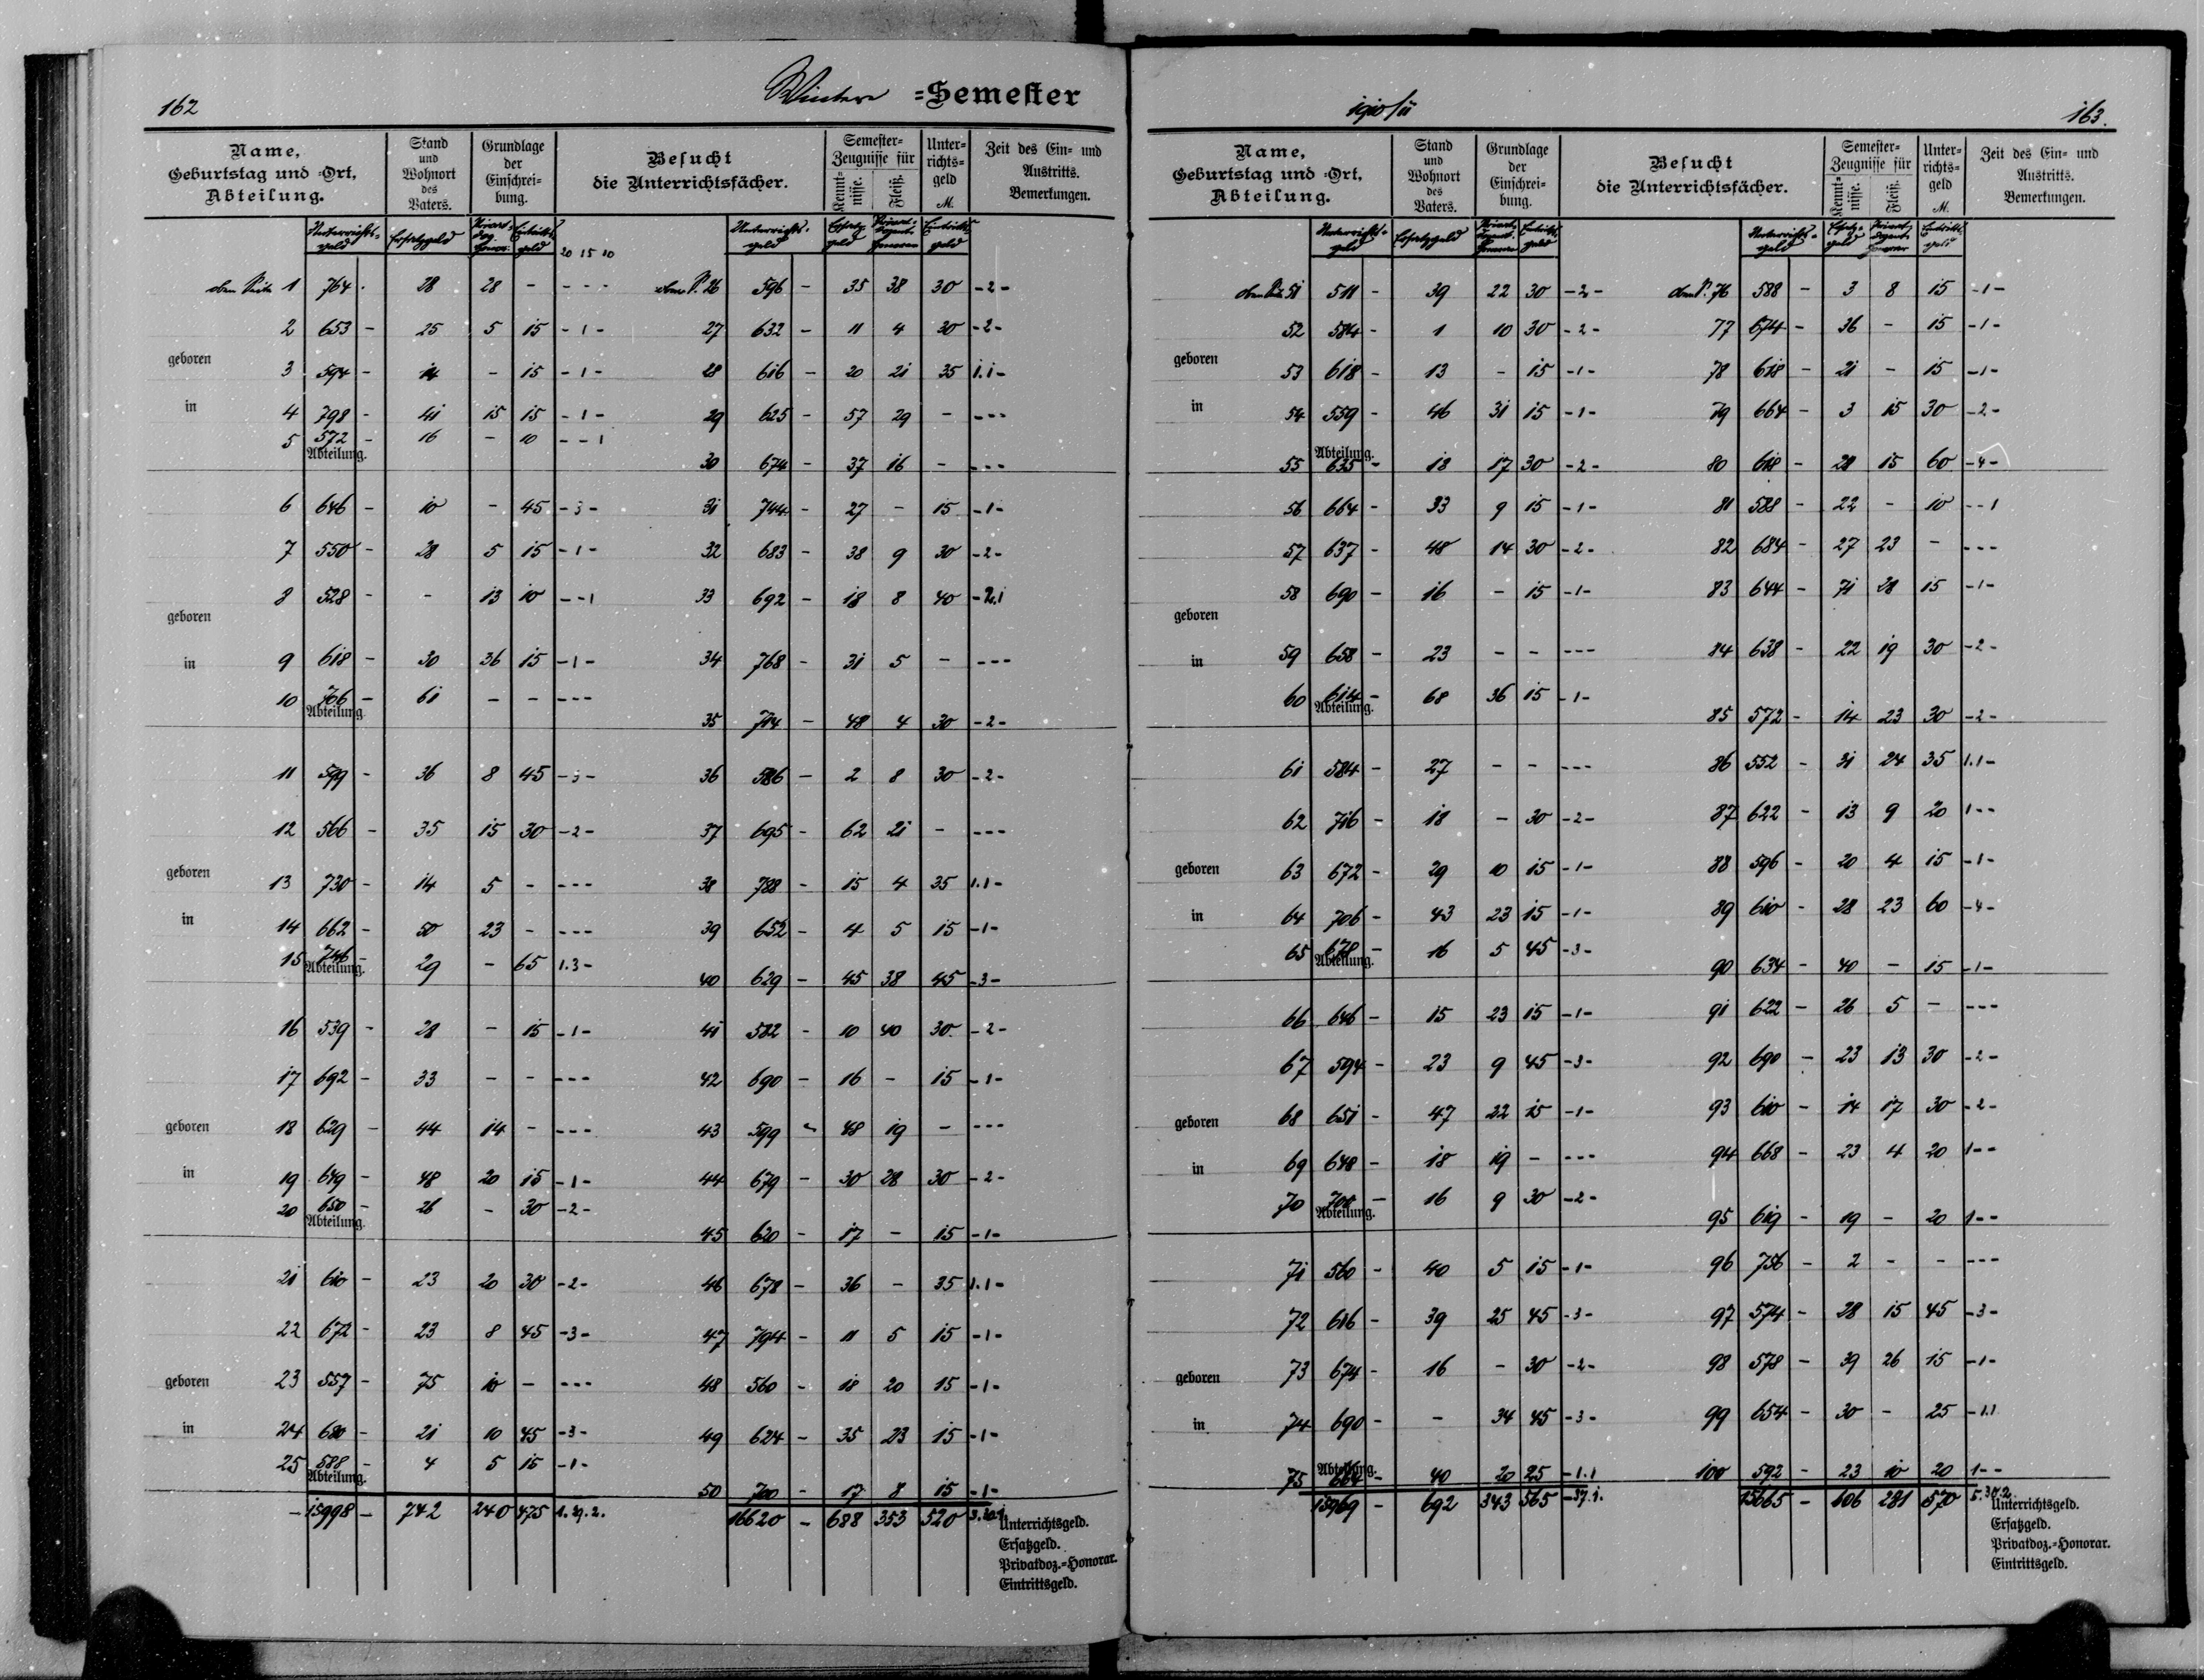 162
Winter =Semester
Name, Geburtstag und =Ort, Abteilung.
Stand und Wohnort des Vaters.
Grundlage der Einschrei- bung.
Besucht die Unterrichtsfächer.
Semester- Zeugnisse für
Kennt- nisse.
Fleiß.
Unter- richts- geld M.
Zeit des Ein- und Austritts. Bemerkungen.
Unterrichts- geld Ersatzgeld Eintritts- geld 20 15 10
Unterrichts- geld Ersatz- geld Eintritts- geld
1 764 - 28 28 - - - -
2 653 - 25 5 15 - 1 -
geboren
3 594 - 14 - 15 - 1 -
in
4 798 - 41 15 15 - 1 -
5 572 - 16 - 10 - - 1
Abteilung.
6 646 - 10 - 45 - 3 -
7 550 - 28 5 15 - 1 -
8 528 - - 13 10 - - 1
geboren
in 9 618 - 30 36 15 - 1 -
10 706 - 61 - - - - -
Abteilung.
11 599 - 36 8 45 - 3 -
12 566 - 35 15 30 - 2 -
geboren 13 730 - 14 5 - - - -
in 14 662 - 50 23 - - - -
15 746 - 29 - 65 1.3 -
Abteilung.
16 539 - 28 - 15 - 1 -
17 692 - 33 - - - - -
geboren 18 629 - 44 14 - - - -
in 19 649 - 48 20 15 - 1 -
20 650 - 26 - 30 - 2 -
Abteilung.
21 610 - 23 20 30 - 2 -
22 672 - 23 8 45 - 3 -
geboren 23 557 - 75 10 - - - -
in 24 680 - 21 10 45 - 3 -
25 588 - 4 5 15 - 1 -
Abteilung.
- 15998 - 742 240 475 1.29.2.
26 596 - 35 38 30 - 2 -
27 632 - 11 4 30 - 2 -
28 616 - 20 21 35 1.1 -
29 625 - 57 29 - - - -
30 674 - 37 16 - - - -
31 744 - 27 - 15 - 1 -
32 683 - 38 9 30 - 2 -
33 692 - 18 8 40 - 2.1
34 768 - 31 5 - - - -
35 714 - 48 4 30 - 2 -
36 586 - 2 8 30 - 2 -
37 695 - 62 21 - - - -
38 788 - 15 4 35 1.1 -
39 652 - 4 5 15 - 1 -
40 629 - 45 38 45 - 3 -
41 582 - 10 40 30 - 2 -
42 690 - 16 - 15 - 1 -
43 599 - 48 19 - - - -
44 679 - 30 28 30 - 2 -
45 620 - 17 - 15 - 1 -
46 678 - 36 - 35 1.1 -
47 794 - 11 5 15 - 1 -
48 560 - 18 20 15 - 1 -
49 624 - 35 23 15 - 1 -
50 700 - 17 8 15 - 1 -
16620 - 688 353 520
Unterrichtsgeld.
Ersatzgeld.
Privatdoz.=Honorar.
Eintrittsgeld.
1910/11
163.
Name, Geburtstag und =Ort, Abteilung.
Stand und Wohnort des Vaters.
Grundlage der Einschrei- bung.
Besucht die Unterrichtsfächer.
Semester- Zeugnisse für
Kennt- nisse.
Fleiß.
Unter- richts- geld M.
Zeit des Ein- und Austritts. Bemerkungen.
Unterrichts- geld Ersatzgeld Eintritts- geld
Unterrichts- geld Ersatz- geld Eintritts- geld
51 511 - 39 22 30 - 2 -
52 584 - 1 10 30 - 2 -
geboren
53 618 - 13 - 15 - 1 -
in 54 559 - 46 31 15 - 1 -
Abteilung.
55 635 - 18 17 30 - 2 -
56 664 - 33 9 15 - 1 -
57 637 - 48 14 30 - 2 -
58 690 - 16 - 15 - 1 -
geboren
in 59 658 - 23 - - - - -
60 614 - 68 36 15 - 1 -
Abteilung.
61 584 - 27 - - - - -
62 716 - 18 - 30 - 2 -
geboren 63 672 - 29 10 15 - 1 -
in 64 706 - 43 23 15 - 1 -
65 678 - 16 5 45 - 3 -
Abteilung.
66 646 - 15 23 15 - 1 -
67 594 - 23 9 45 - 3 -
geboren 68 651 - 47 22 15 - 1 -
in 69 648 - 18 19 - - - -
70 700 - 16 9 30 - 2 -
Abteilung.
71 560 - 40 5 15 - 1 -
72 616 - 39 25 45 - 3 -
geboren 73 674 - 16 - 30 - 2 -
in 74 690 - - 34 45 - 3 -
Abteilung.
75 664 - 40 20 25 - 1.1
15969 - 692 343 565 - 37.1.
76 588 - 3 8 15 - 1 -
77 674 - 36 - 15 - 1 -
78 618 - 21 - 15 - 1 -
79 664 - 3 15 30 - 2 -
80 618 - 21 15 60 - 4 -
81 588 - 22 - 10 - - 1
82 684 - 27 23 - - - -
83 644 - 71 28 15 - 1 -
84 638 - 22 19 30 - 2 -
85 572 - 14 23 30 - 2 -
86 552 - 31 24 35 1.1 -
87 622 - 13 9 20 1 - -
88 596 - 20 4 15 - 1 -
89 610 - 28 23 60 - 4 -
90 634 - 40 - 15 - 1 -
91 622 - 26 5 - - - -
92 690 - 23 13 30 - 2 -
93 610 - 14 17 30 - 2 -
94 668 - 23 4 20 1 - -
95 619 - 19 - 20 1 - -
96 756 - 2 - - - - -
97 574 - 28 15 45 - 3 -
98 578 - 39 26 15 - 1 -
99 654 - 30 - 25 - 1.1
100 592 - 23 10 20 1 - -
15665 - 606 281 570 5.30.2
Unterrichtsgeld.
Ersatzgeld.
Privatdoz.=Honorar.
Eintrittsgeld.